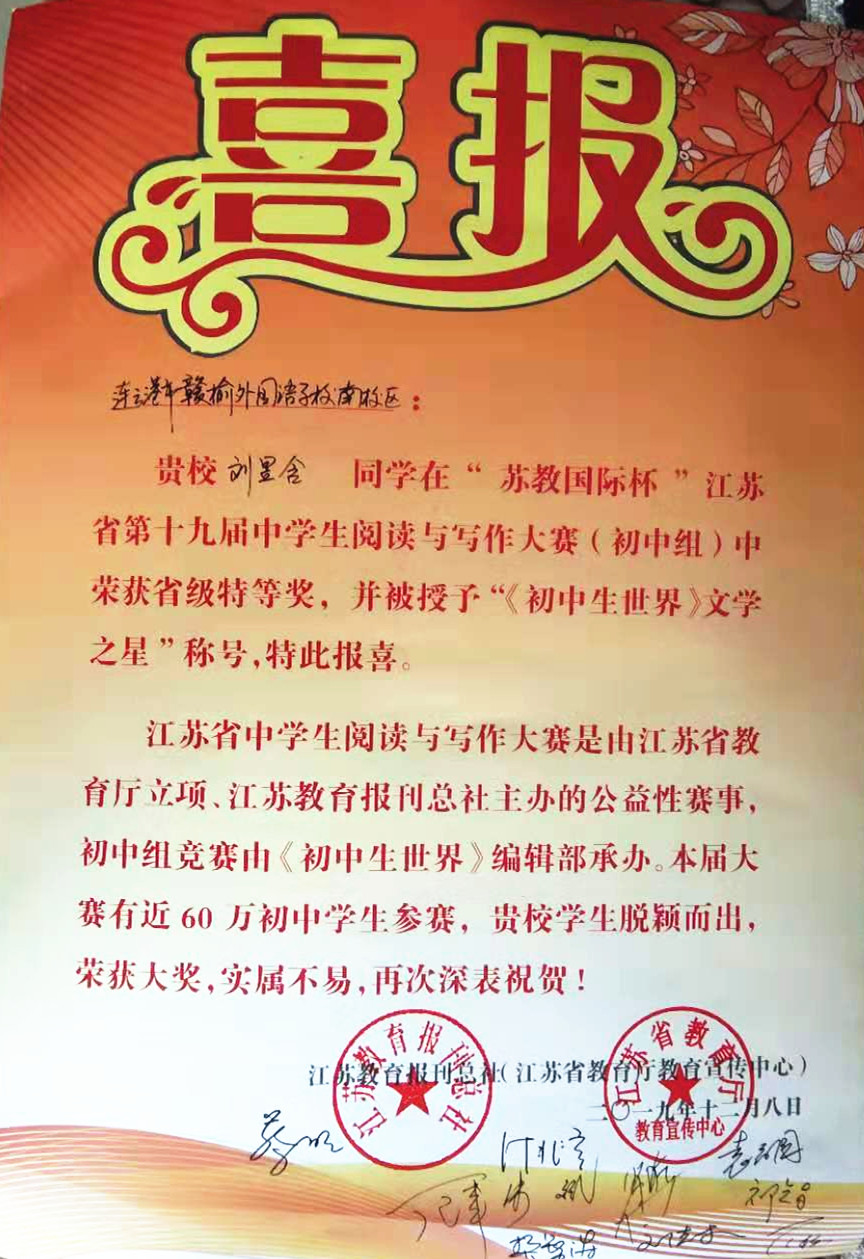 喜报
连云港市赣榆外国语学校南校区：
贵校 刘昱含 同学在“苏教国际杯”江苏
省第十九届中学生阅读与写作大赛（初中组）中
荣获省级特等奖，并被授予“《初中生世界》文学
之星”称号，特此报喜。
江苏省中学生阅读与写作大赛是由江苏省教
育厅立项、江苏教育报刊总社主办的公益性赛事，
初中组竞赛由《初中生世界》编辑部承办。本届大
赛有近60万初中学生参赛，贵校学生脱颖而出，
荣获大奖，实属不易，再次深表祝贺！
江苏教育报刊总社（江苏省教育厅教育宣传中心）
二〇一九年十二月八日
江苏教育报刊总社
江苏省教育厅
教育宣传中心